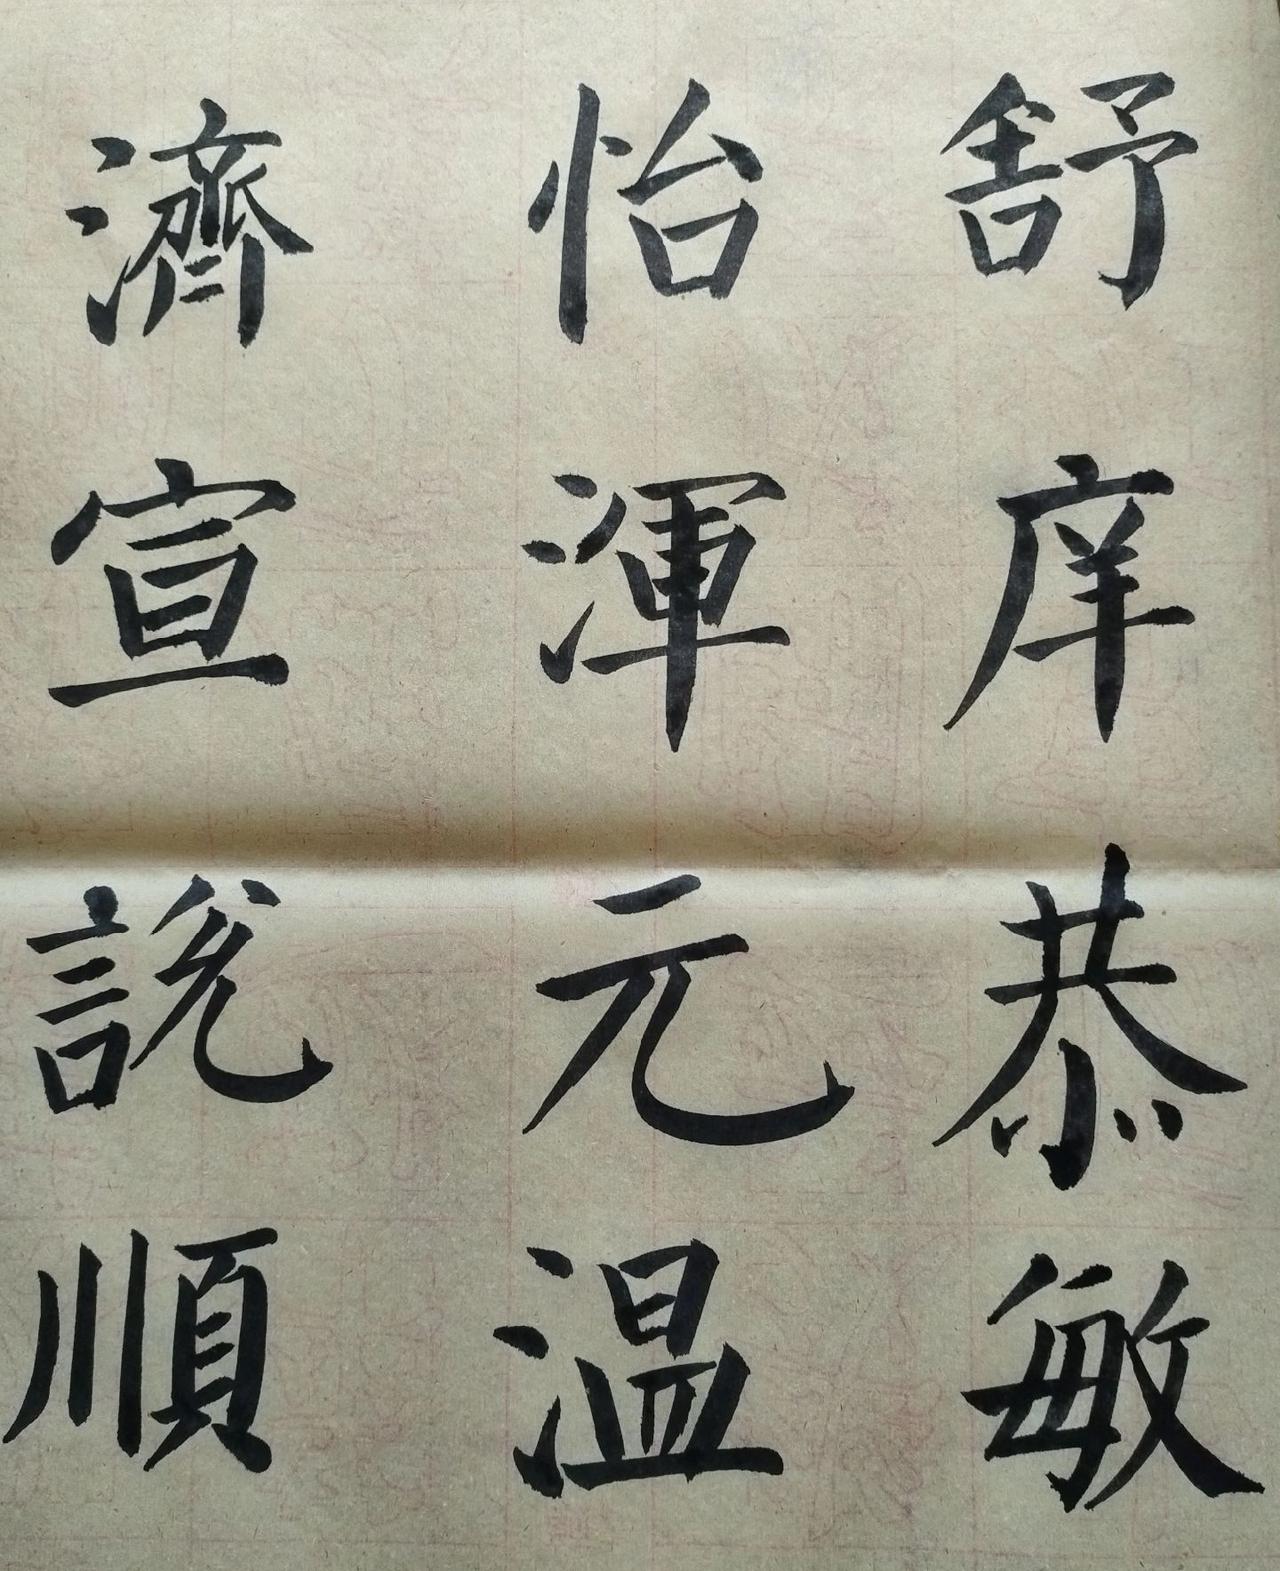 舒庠恭敏
怡渾元温
濟宣説順